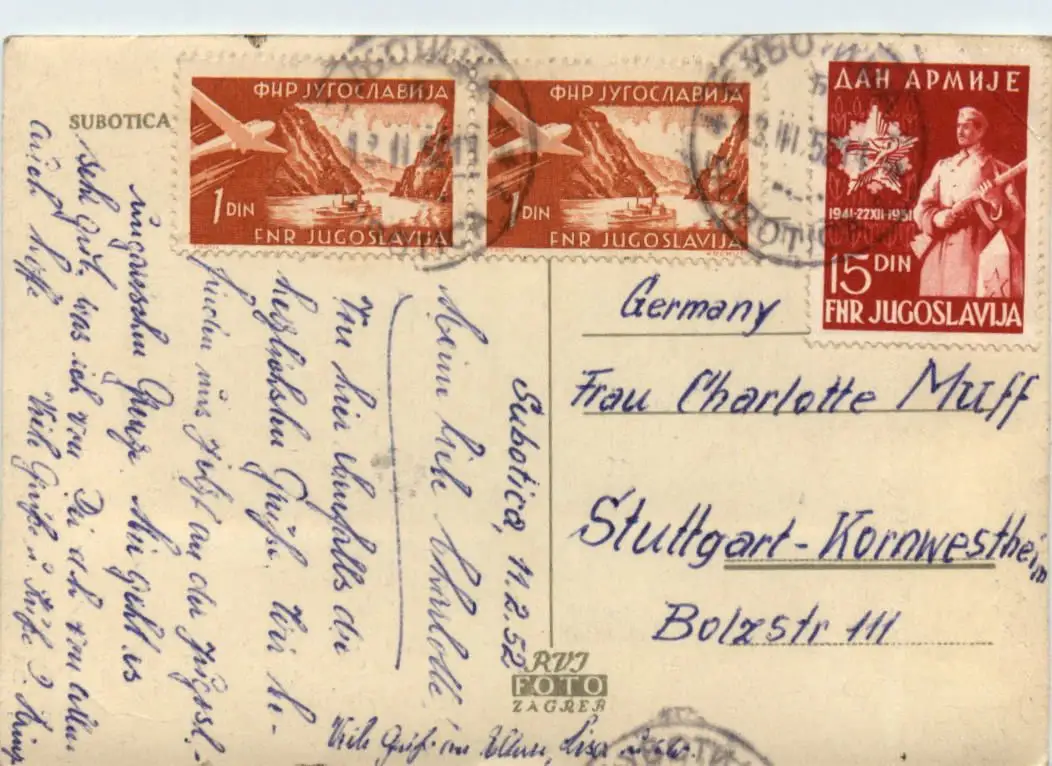 SUBOTICA
ФНР ЈУГОСЛАВИЈА
1 DIN
FNR JUGOSLAVIJA
ФНР ЈУГОСЛАВИЈА
1 DIN
FNR JUGOSLAVIJA
ДАН АРМИЈЕ
1941-22XII-1951
15 DIN
FNR JUGOSLAVIJA
Germany
Frau Charlotte Muff
Stuttgart-Kornwestheim
Bolzstr 111
Subotica, 11.2.52
Meine liebe Charlotte!
Von hier ebenfalls die
herzlichsten Grüße. Wir be-
finden uns jetzt an der jugosl.-
ungarischen Grenze. Mir geht es
sehr gut, was ich von Dir
auch hoffe
Viele Grüße u. Küße
Viele Grüße
RVI
FOTO
ZAGREB